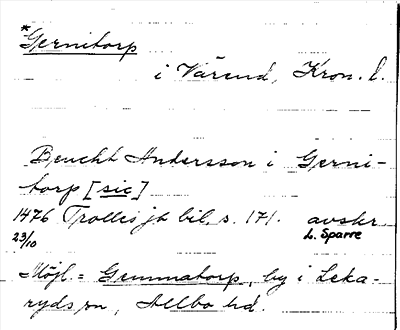 *Gernitorp
i Värend, Kron. l.
Bencht Andersson i Gerni-
torp [sic]
1476 Trolles jb bil. s. 171. avskr
23/10 L. Sparre
Möjl. = Gemmatorp, by i Leka-
ryds sn, Allbo hd.